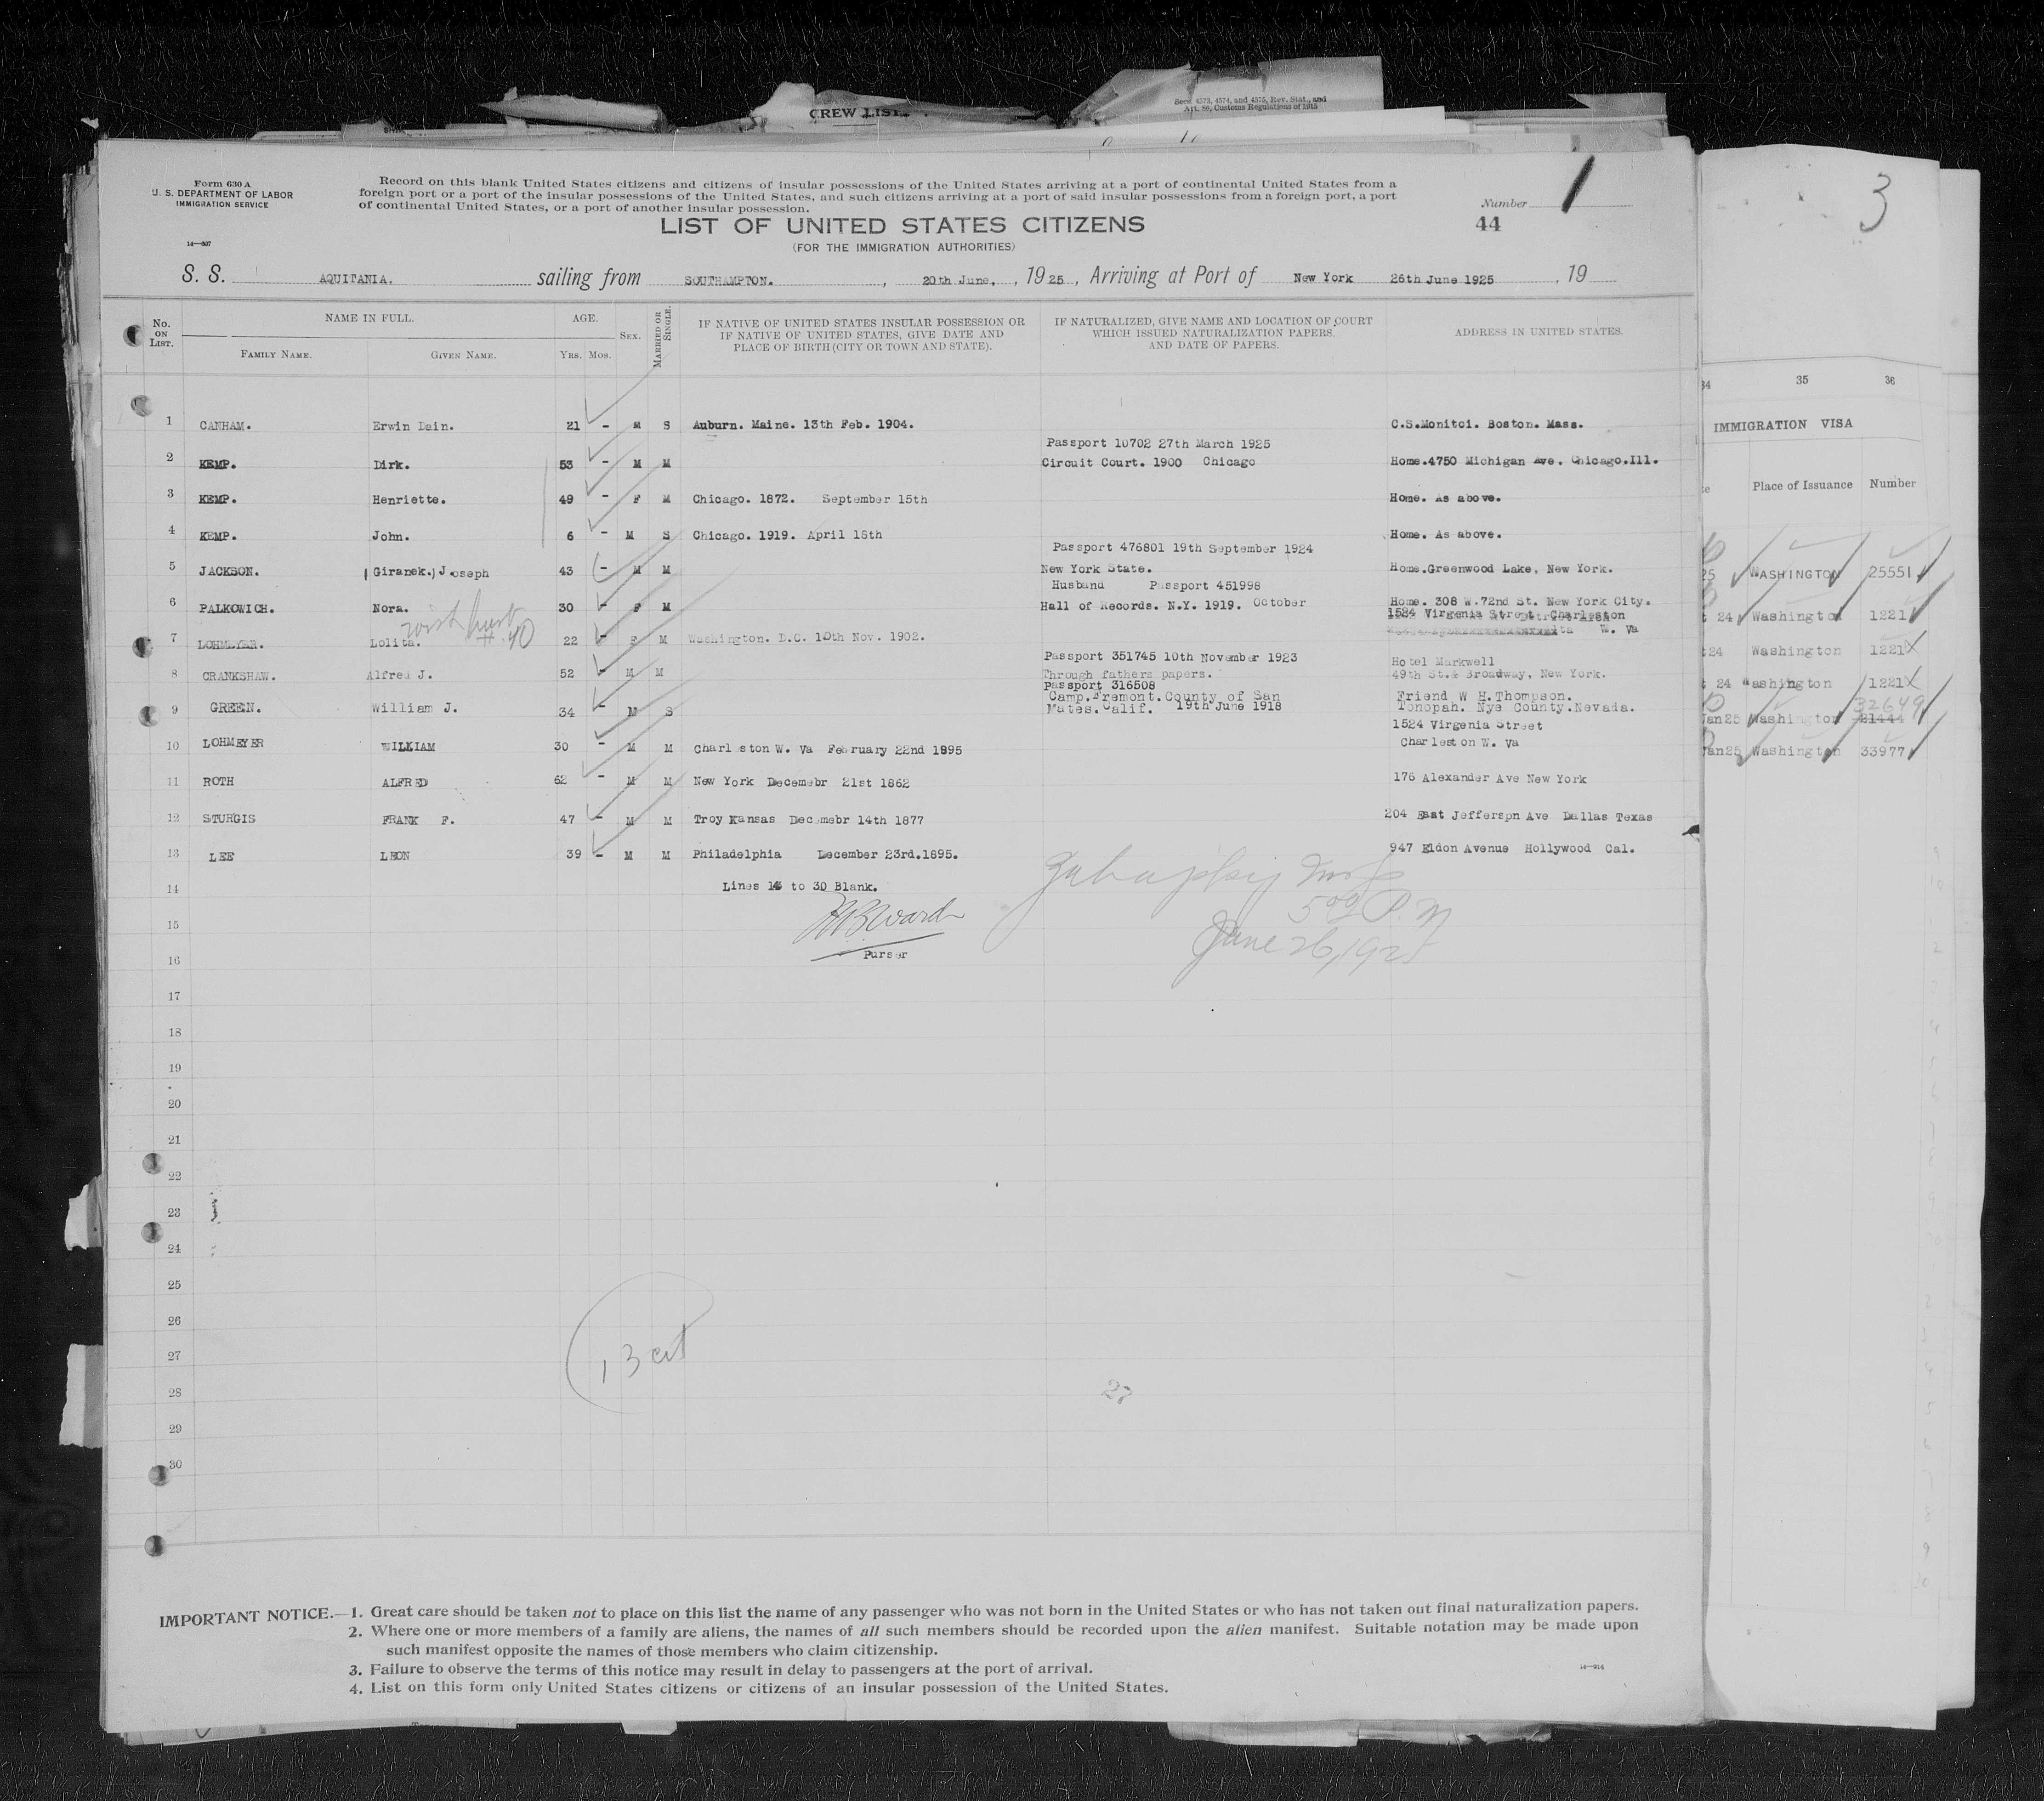 CREW LIST
Secs. 4573, 4574, and 4575, Rev. Stat., and
Art. 89, Customs Regulations of 1915
Form 630 A
U. S. DEPARTMENT OF LABOR
IMMIGRATION SERVICE
14—507
Record on this blank United States citizens and citizens of insular possessions of the United States arriving at a port of continental United States from a
foreign port or a port of the insular possessions of the United States, and such citizens arriving at a port of said insular possessions from a foreign port, a port
of continental United States, or a port of another insular possession.
Number 1
44
LIST OF UNITED STATES CITIZENS
(FOR THE IMMIGRATION AUTHORITIES)
S. S. AQUITANIA. sailing from SOUTHAMPTON. , 20th June, , 1925, Arriving at Port of New York 26th June 1925 , 19
No. ON LIST. NAME IN FULL. FAMILY NAME. GIVEN NAME. AGE. YRS. MOS. SEX. MARRIED OR SINGLE. IF NATIVE OF UNITED STATES INSULAR POSSESSION OR IF NATIVE OF UNITED STATES, GIVE DATE AND PLACE OF BIRTH (CITY OR TOWN AND STATE). IF NATURALIZED, GIVE NAME AND LOCATION OF COURT WHICH ISSUED NATURALIZATION PAPERS. AND DATE OF PAPERS. ADDRESS IN UNITED STATES.
1 CANHAM. Erwin Dain. 21 - M S Auburn. Maine. 13th Feb. 1904. C.S.Monitci. Boston. Mass.
Passport 10702 27th March 1925
2 KEMP. Dirk. 53 - M M Circuit Court. 1900 Chicago Home.4750 Michigan Ave. Chicago.Ill.
3 KEMP. Henriette. 49 - F M Chicago. 1872. September 15th Home. As above.
4 KEMP. John. 6 - M S Chicago. 1919. April 18th Home. As above.
Passport 476801 19th September 1924
5 JACKSON. (Giranek.) Joseph 43 - M M New York State. Home.Greenwood Lake, New York.
Husband Passport 451998
6 PALKOWICH. Nora. 30 - F M Hall of Records. N.Y. 1919. October Home. 308 W.72nd St. New York City.
1524 Virgenia Street. Charleston
7 LOHMEYER. Lolita. 22 - F M Washington. D.C. 10th Nov. 1902. W. Va
Passport 351745 10th November 1923 Hotel Markwell
8 CRANKSHAW. Alfred J. 52 - M M Through fathers papers. 49th St.& Broadway, New York.
Passport 316508
Camp.Fremont.County of San Friend W H.Thompson.
9 GREEN. William J. 34 - M S Mateo. Calif. 19th June 1918 Tonopah. Nye County.Nevada.
1524 Virgenia Street
10 LOHMEYER WILLIAM 30 - M M Charleston W. Va February 22nd 1895 Charleston W. Va
11 ROTH ALFRED 62 - M M New York Decemebr 21st 1862 176 Alexander Ave New York
12 STURGIS FRANK F. 47 - M M Troy Kansas Decemebr 14th 1877 204 East Jefferspn Ave Dallas Texas
13 LEE LEON 39 - M M Philadelphia December 23rd.1895. 947 Eldon Avenue Hollywood Cal.
14 Lines 14 to 30 Blank.
5 00 P. M
15
June 26, 1925
16 Purser
17
18
19
20
21
22
23
24
25
26
27
13 cit
28
27
29
30
IMPORTANT NOTICE.—1. Great care should be taken not to place on this list the name of any passenger who was not born in the United States or who has not taken out final naturalization papers.
2. Where one or more members of a family are aliens, the names of all such members should be recorded upon the alien manifest. Suitable notation may be made upon
such manifest opposite the names of those members who claim citizenship.
3. Failure to observe the terms of this notice may result in delay to passengers at the port of arrival.
4. List on this form only United States citizens or citizens of an insular possession of the United States.
3
34 35 36
IMMIGRATION VISA
Place of Issuance Number
25 WASHINGTON 25551
24 Washington 1221
24 Washington 1221
24 Washington 1221
32649
Jan25 Washington 21444
Jan25 Washington 33977